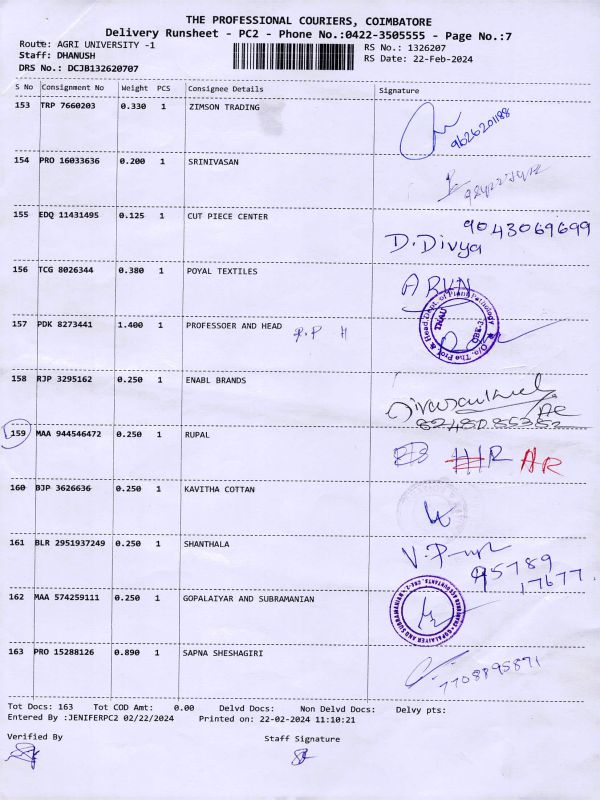 THE PROFESSIONAL COURIERS, COIMBATORE
Delivery Runsheet - PC2 - Phone No.:0422-3505555 - Page No.:7
Route: AGRI UNIVERSITY -1 RS No.: 1326207
Staff: DHANUSH RS Date: 22-Feb-2024
DRS No.: DCJB132620707
S No Consignment No Weight PCS Consignee Details Signature
153 TRP 7660203 0.330 1 ZIMSON TRADING
9626201188
154 PRO 16033636 0.200 1 SRINIVASAN
155 EDQ 11431495 0.125 1 CUT PIECE CENTER 9043069699
D.Divya
156 TCG 8026344 0.380 1 POYAL TEXTILES ARKN
157 PDK 8273441 1.400 1 PROFESSOER AND HEAD
O/o. The Prof & Head Dept. of Plant Pathology
TNAU CBE-3
158 RJP 3295162 0.250 1 ENABL BRANDS
159 MAA 944546472 0.250 1 RUPAL AR
160 BJP 3626636 0.250 1 KAVITHA COTTAN
161 BLR 2951937249 0.250 1 SHANTHALA
95789
17677
162 MAA 574259111 0.250 1 GOPALAIYAR AND SUBRAMANIAN
GOPALAIYER AND SUBRAMANIAN CHARTERED ACCOUNTANTS, CBE-2.
163 PRO 15288126 0.890 1 SAPNA SHESHAGIRI
7708895871
Tot Docs: 163 Tot COD Amt: 0.00 Delvd Docs: Non Delvd Docs: Delvy pts:
Entered By :JENIFERPC2 02/22/2024 Printed on: 22-02-2024 11:10:21
Verified By Staff Signature